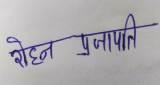 रोहन प्रजापति